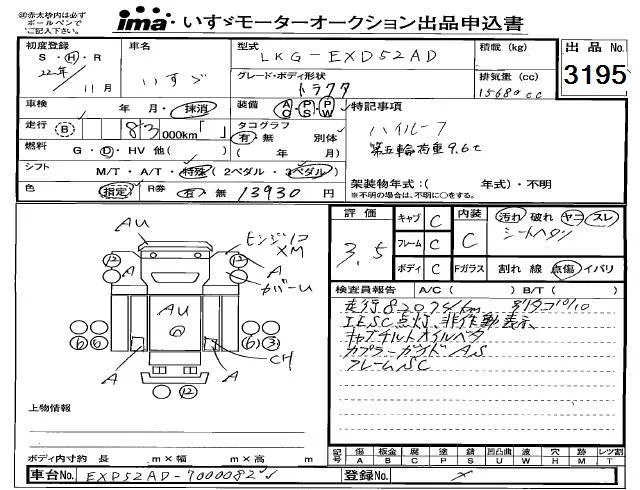 ㊟赤太枠内は必ず
ボールペンで
ご記入下さい。
ima いすゞモーターオークション出品申込書
初度登録 車名 型式 LKG-EXD52AD 積載(kg) 出品No.
S・H・R いすゞ グレード・ボディ形状 3195
22年 11月 トラクタ 排気量(cc) 15680cc
車検 年 月・抹消 装備 AC・PS・PW 特記事項
走行 B 813 000km「 」 タコグラフ ハイルーフ
有・無 別体 第五輪荷重9.6t
燃料 G・D・HV 他( ) ( 年 月)
シフト M/T・A/T・特殊(2ペダル・3ペダル) 架装物年式:( 年式)・不明
※不明の場合は、不明に○をする。
色 指定 R券 有・無 13930 円
評価 3.5 キャブ C 内装 C 汚れ 破れ ヤコ スレ
フレーム C シートヘタリ
ボディ C Fガラス 割れ 線 点傷 イバリ
AU エンジンコ
XM
⑫ A ⑫ A
カバーU
AU
A A CH
⑥ ⑥ ⑥ ③
⑫
検査員報告 A/C( ) B/T( )
走行820741km 別タコ10/10
IESC点灯、非作動表示
キャブチルトオイルベタ
カプラーガイドAS
フレームSC
上物情報
ボディ内寸約 長 m×幅 m×高 m
記号 傷 A 板金 B 腐 C 塗 P 錆 S 凹凸曲 U 波 W 穴 H 跡 M レツ割 T
車台No. EXP52AD-7000082 登録No.